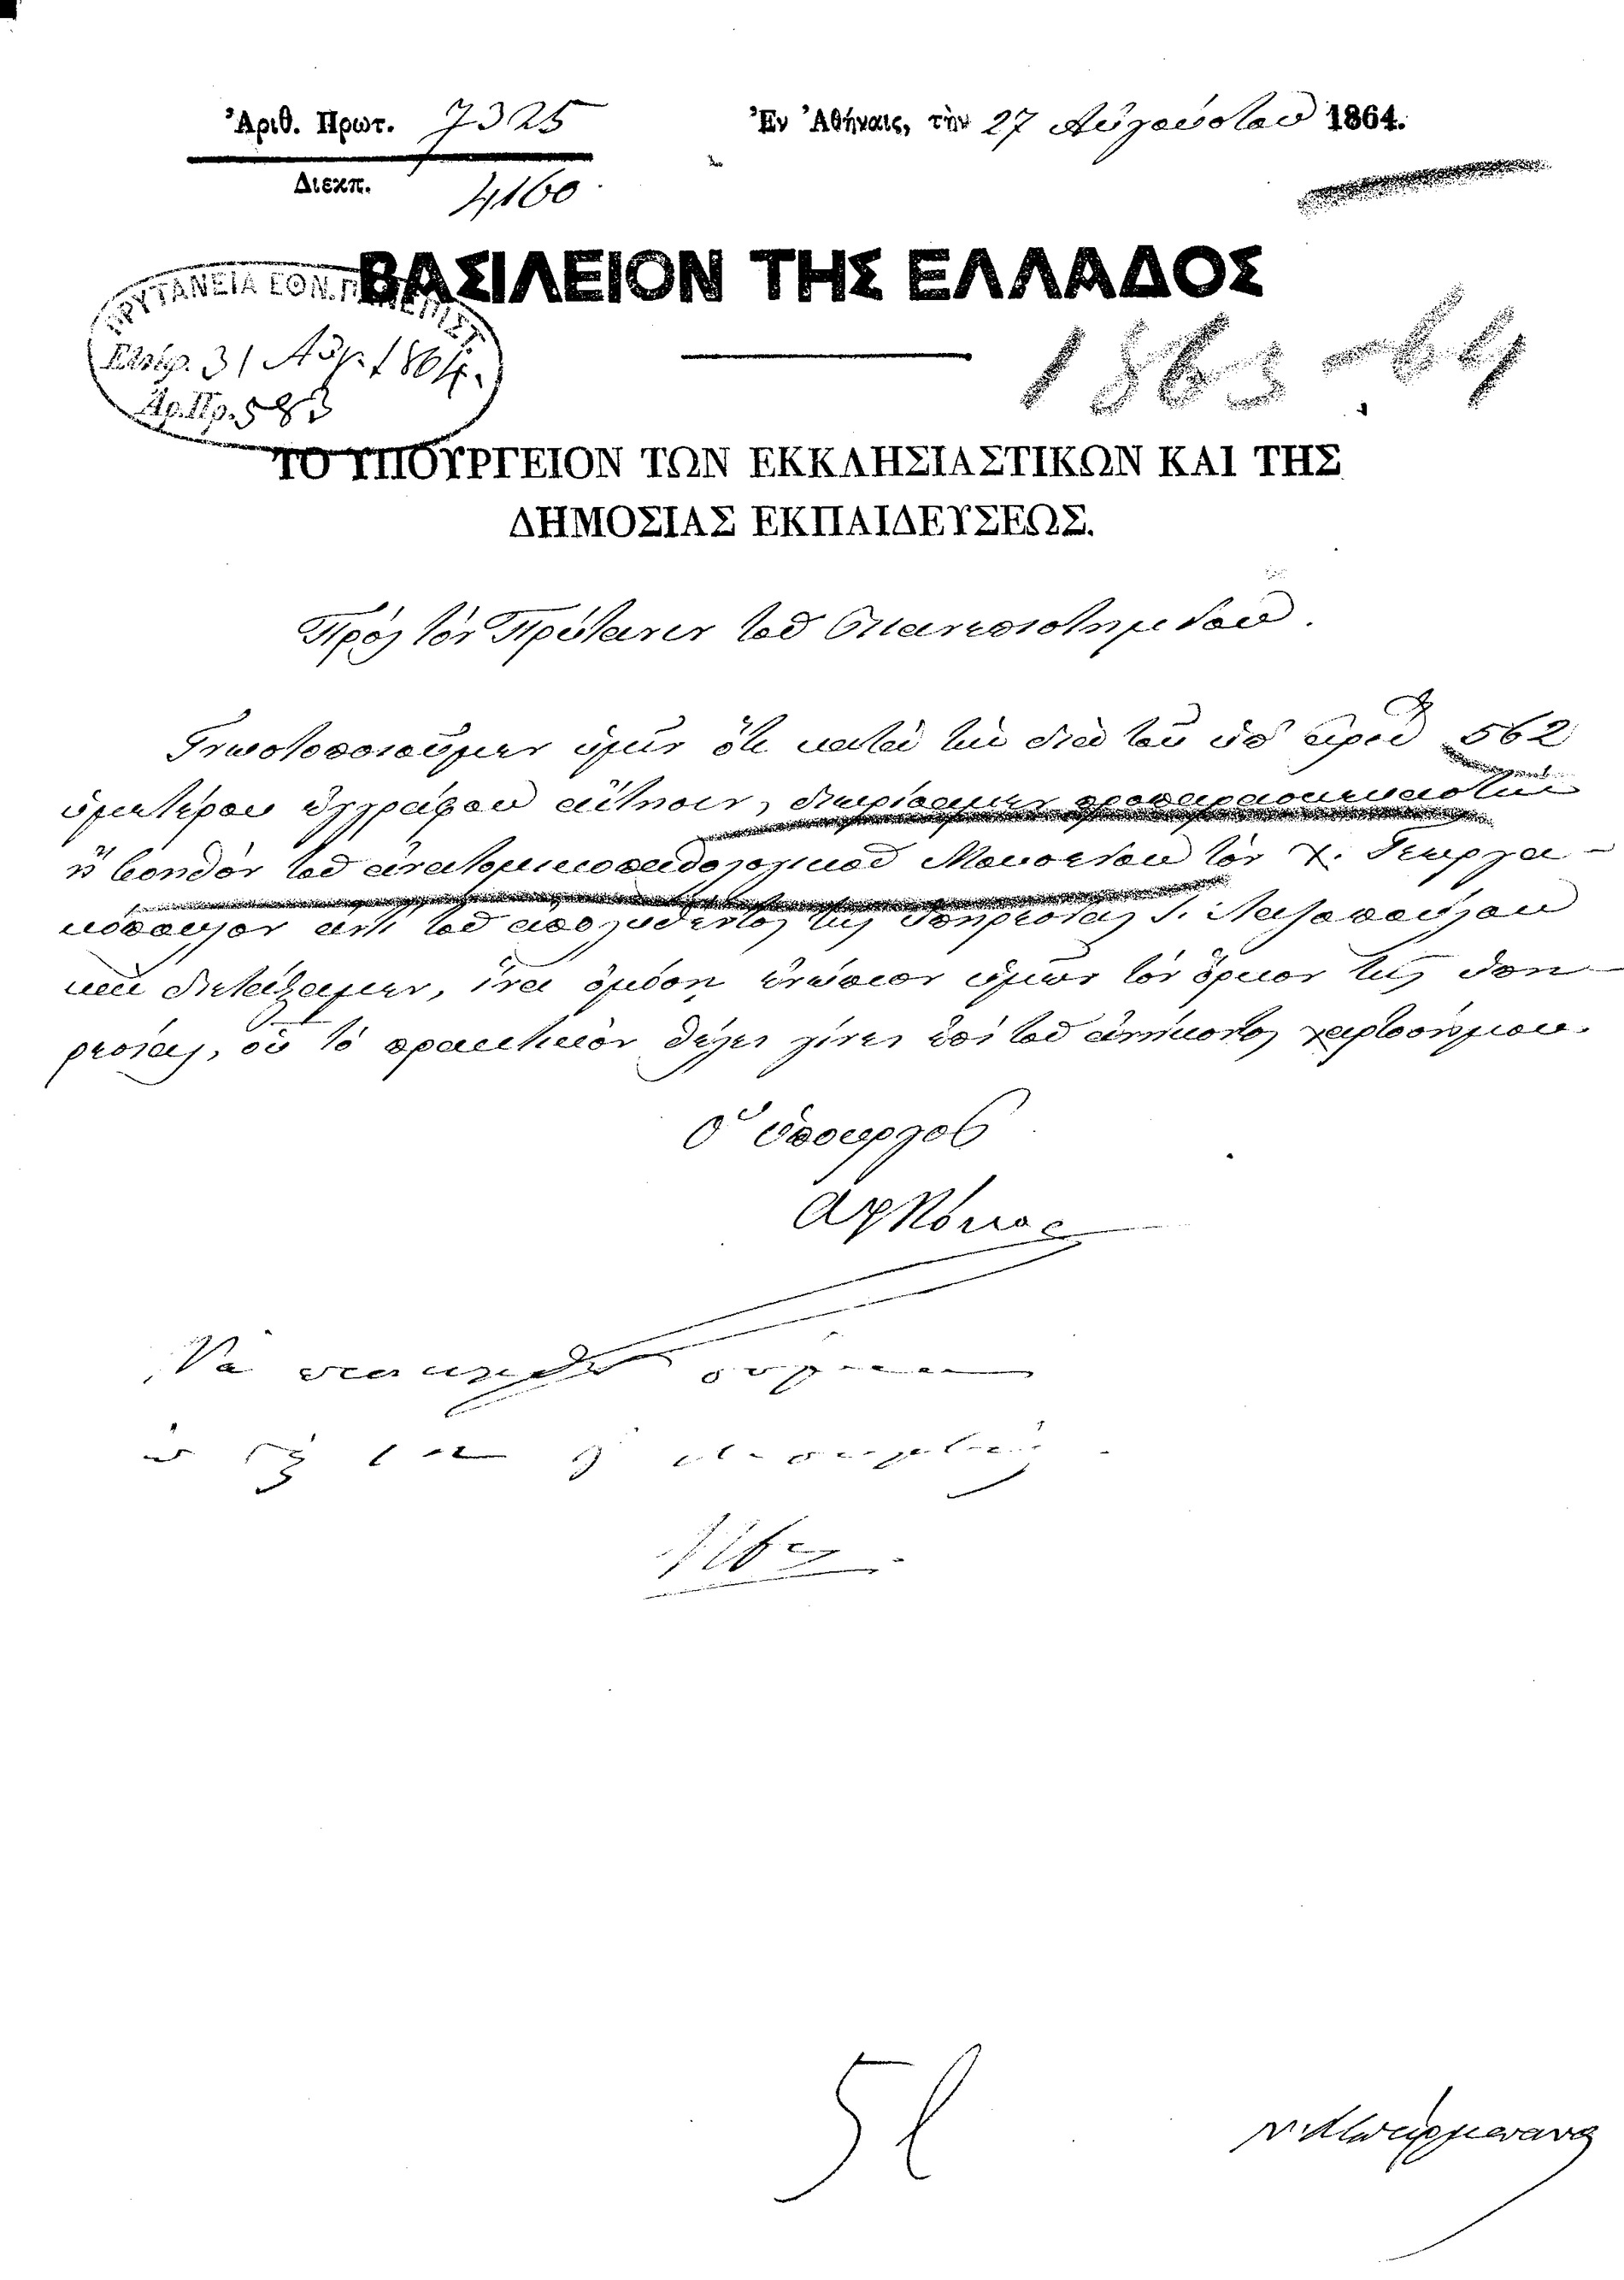 Ἀριθ. Πρωτ. 7325
Διεκπ. 4160
Ἐν Ἀθήναις, τὴν 27 Αὐγούστου 1864.
ΒΑΣΙΛΕΙΟΝ ΤΗΣ ΕΛΛΑΔΟΣ
ΠΡΥΤΑΝΕΙΑ ΕΘΝ. ΠΑΝΕΠΙΣΤ.
31 Αὐγ. 1864.
Ἀρ.Πρ. 583
1863-64
ΤΟ ΥΠΟΥΡΓΕΙΟΝ ΤΩΝ ΕΚΚΛΗΣΙΑΣΤΙΚΩΝ ΚΑΙ ΤΗΣ
ΔΗΜΟΣΙΑΣ ΕΚΠΑΙΔΕΥΣΕΩΣ.
Πρὸς τὸν Πρύτανιν τοῦ Πανεπιστημείου.
Γνωστοποιοῦμεν ὑμῖν ὅτι κατὰ τὴν διὰ τοῦ ὑπ' ἀριθ 562
ὑμετέρου ἐγγράφου αἴτησιν, διωρίσαμεν προπαρασκευαστὴν
ἢ βοηθὸν τοῦ ἀνατομικοπαθολογικοῦ Μουσείου τὸν Χ. Γεωργα-
κόπουλον ἀντὶ τοῦ ἀπολυθέντος τῆς ὑπηρεσίας Γ. Λαζοπούλου
καὶ διετάξαμεν, ἵνα ὀμόσῃ ἐνώπιον ὑμῶν τὸν ὅρκον τῆς ὑπη-
ρεσίας, οὗ τὸ πρακτικὸν θέλει γίνει ἐπὶ τοῦ ἀνήκοντος χαρτοσήμου.
Ὁ ὑπουργὸς
Νὰ
51